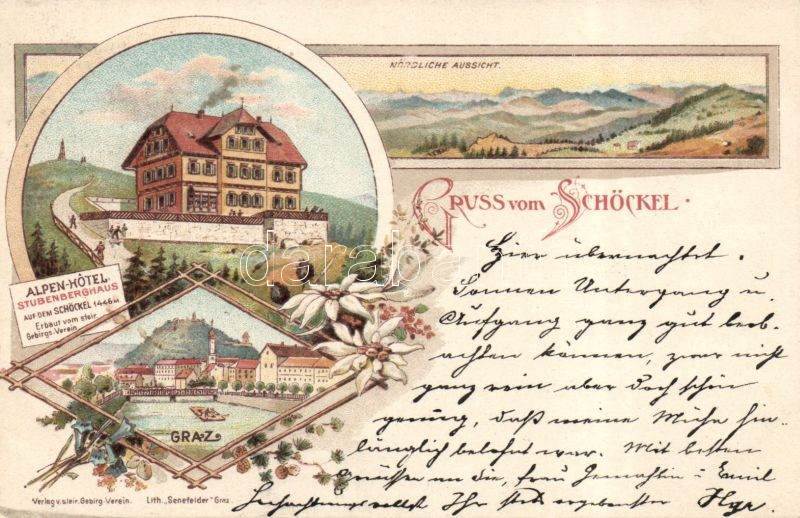 NÖRDLICHE AUSSICHT.
GRUSS VOM SCHÖCKEL.
ALPEN-HÔTEL
STUBENBERGHAUS
AUF DEM SCHÖCKEL 1446 M
Erbaut vom steir.
Gebirgs-Verein
GRAZ
Hier übernachtet.
Sonnen Untergang u
Aufgang ganz gut beob-
achten können, zwar nicht
ganz rein aber doch schön
genung, daß meine Mühe hin-
länglich belohnt war. Mit besten
Grüssen an die, frau Gemahlin u Emil
Hochachtungsvollst Ihr stets ergebenster
Verlag v. steir. Gebirg-Verein.
Lith. „Senefelder" Graz.
darabanth